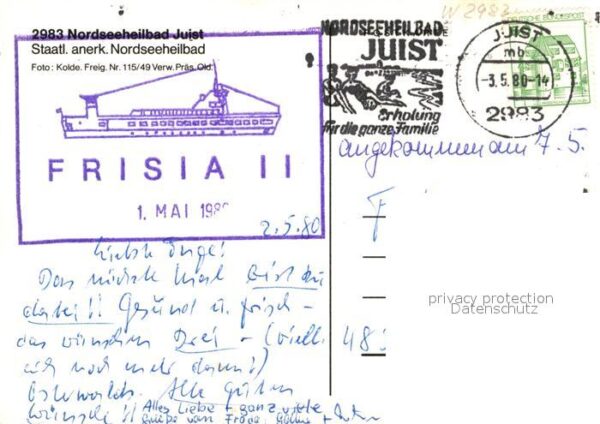 2983 Nordseeheilbad Juist
Staatl. anerk. Nordseeheilbad
Foto: Kolde. Freig. Nr. 115/49 Verw. Präs. Old.
FRISIA II
1. MAI 1980
W 2983
NORDSEEHEILBAD
JUIST
Erholung
für die ganze Familie
DEUTSCHE BUNDESPOST
JUIST
mb
-3.5.80-14
2983
angekommen am 7.5.
2.5.80
Liebste Inge!
Das nächste Mal bist du
dabei!! Gesund u. frisch –
das wünschen Drei – (vielk.
auch noch mehr dann!)
Alle guten
Wünsche!! Alles Liebe + ganz viele
Grüße von
F
48
privacy protection
Datenschutz